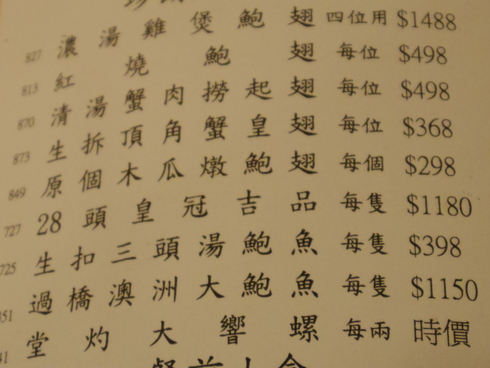 827 濃湯雞煲鮑翅 四位用 $1488
813 紅燒鮑翅 每位 $498
870 清湯蟹肉撈起翅 每位 $498
873 生拆頂角蟹皇翅 每位 $368
849 原個木瓜燉鮑翅 每個 $298
727 28頭皇冠吉品 每隻 $1180
725 生扣三頭湯鮑魚 每隻 $398
351 過橋澳洲大鮑魚 每隻 $1150
41 堂灼大響螺 每兩 時價